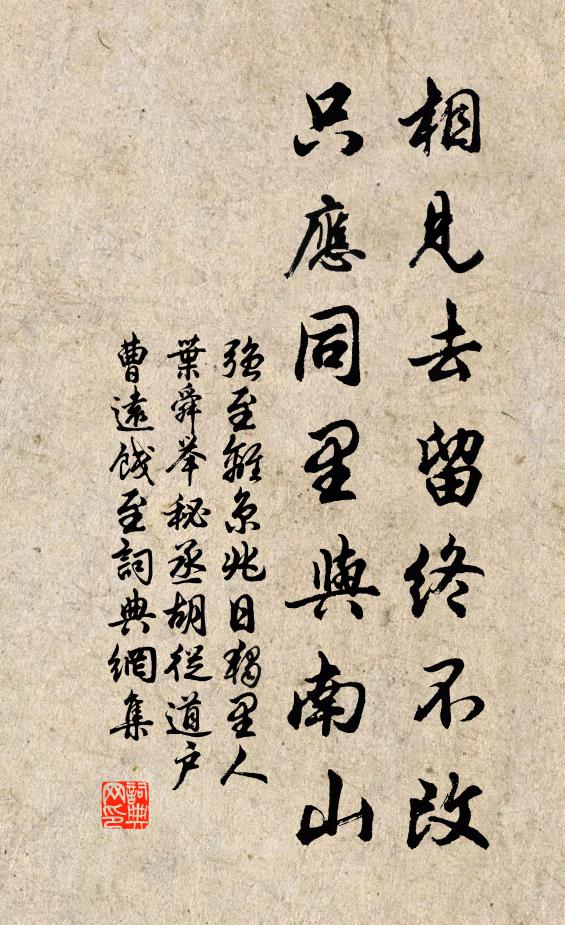 相見去留終不改
只應同里與南山
強至離京兆日獨里人
葉舜舉秘丞胡從道户
曹遠餞至詞典網集
詞典网印